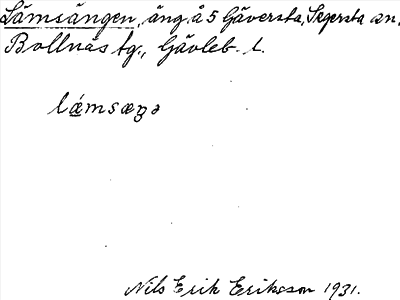 Lämsängen, äng, å 5 Gäversta, Segersta sn,
Bollnäs tg., Gävleb. l.
lǽmsæŋə
Nils Erik Eriksson 1931.